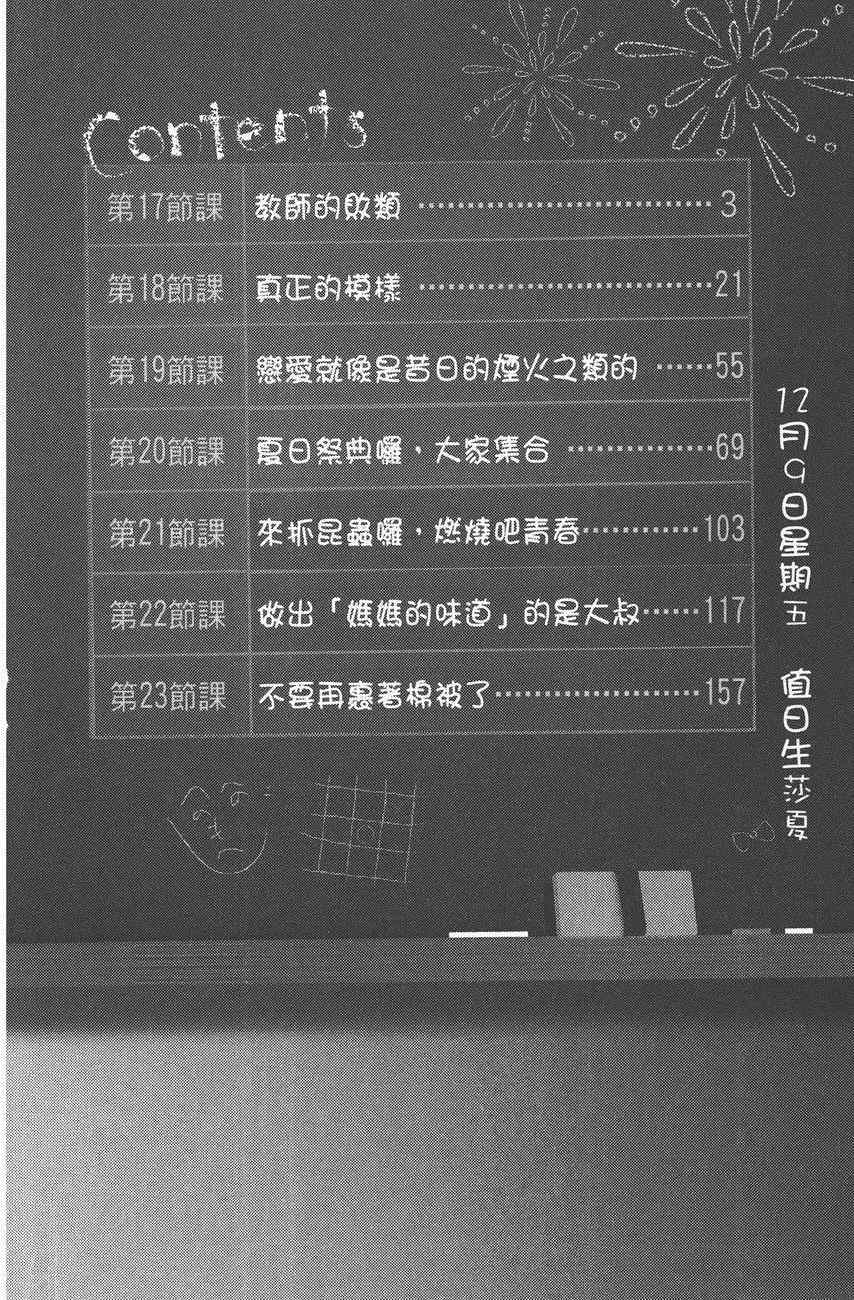 Contents
第17節課 教師的敗類 ……………………… 3
第18節課 真正的模樣 ……………………… 21
第19節課 戀愛就像是昔日的煙火之類的 …… 55
第20節課 夏日祭典囉，大家集合 ………… 69
第21節課 來抓昆蟲囉，燃燒吧青春………… 103
第22節課 做出「媽媽的味道」的是大叔…… 117
第23節課 不要再裹著棉被了……………… 157
12月9日星期五 值日生莎夏